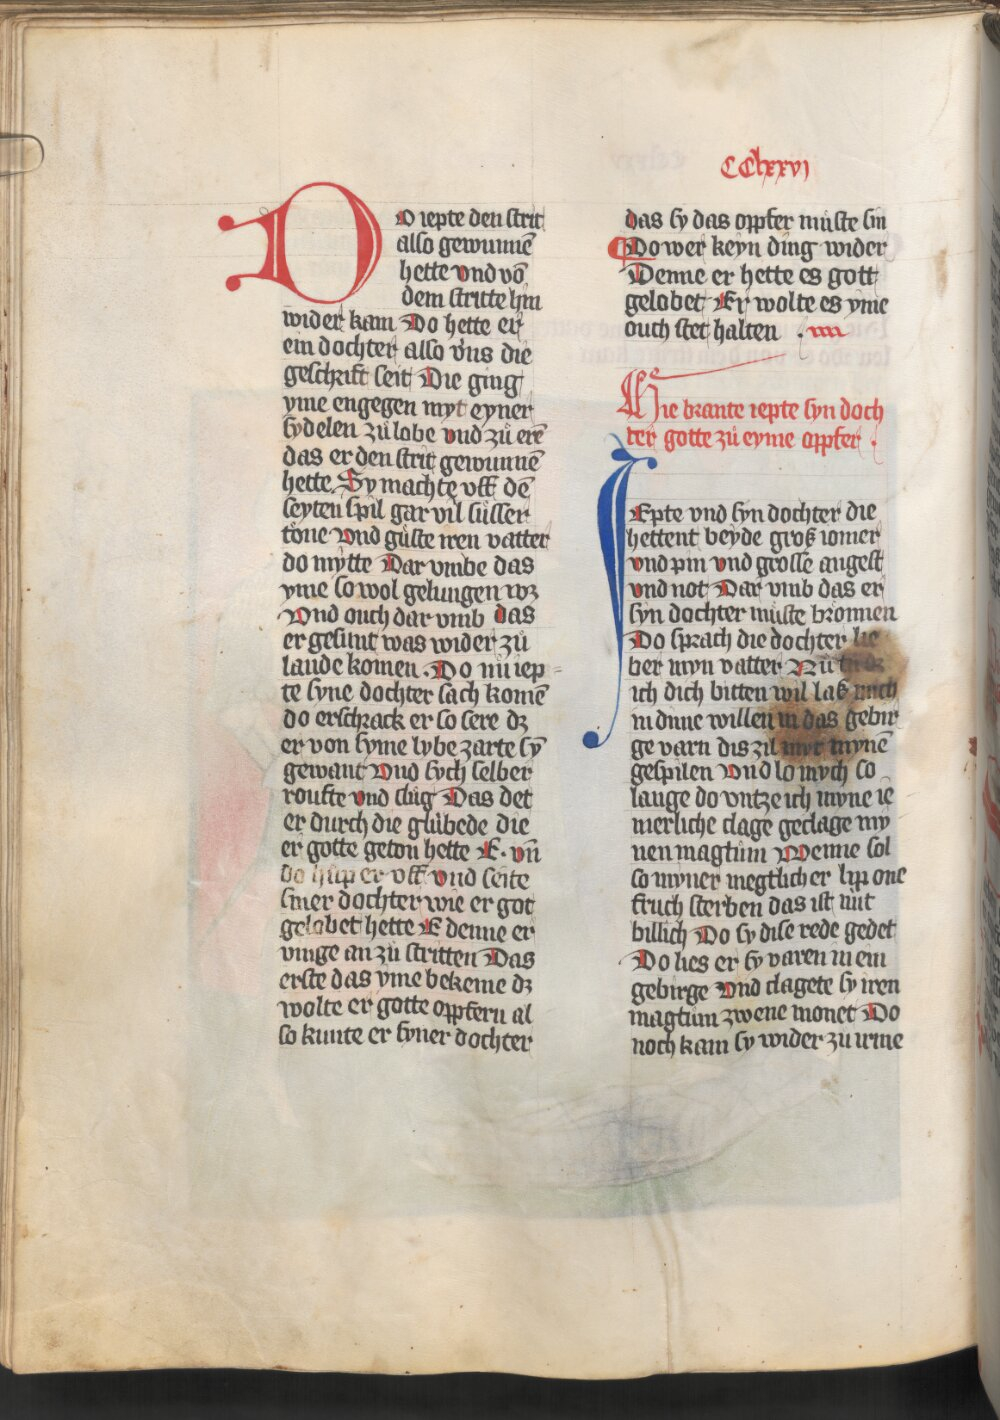 CClxxvj
DO iepte den strit
also gewunnē
hette vnd vō
dem stritte hin
wider kam Do hette er
ein dochter also v̓ns die
geschrift seit Die ging
yme engegen myt eyner
fydelen zů lobe vnd zů erē
das er den strit gewunnē
hette Sy machte vff dē
seyten spil gar vil sůsser
tŏne Vnd gůste iren vatter
do mytte Dar vmbe das
yme so wol gelungen wz
Vnd ouch dar vmb das
er gesunt was wider zů
lande komen Do nů iep-
te syne dochter sach komē
do erschrack er so sere dz
er von syme lybe zarte sȳ
gewant Vnd sych selber
roufte vnd slůg Das det
er durch die glůbede die
er gotte geton hette E. vn̄
do hůp er vff vnd seite
siner dochter wie er got
gelobet hette E denne er
vinge an zů stritten Das
erste das yme bekeme dz
wolte er gotte oppfern al
so kunte er syner dochter
das sy das oppfer můste sin
Do wer keyn ding wider
Denne er hette es gott
gelobet Er wolte es yme
ouch stet halten
Hie brante iepte syn doch
ter gotte zů eyme oppfer
IEpte vnd syn dochter die
hettent beyde groß iomer
vnd pin vnd grosse angest
vnd not Dar vmb das er
syn dochter můste bronnen
Do sprach die dochter lie
ber myn vatter Nů tů dz
ich dich bitten wil laß mich
in dinne willen in das gebir
ge varn dis zil myt mynē
gespilen Vnd lo mych so
lange do vntze ich myne ie
merliche clage geclage my
nen magtům Wenne sol
so myner megtlicher lip one
fruch sterben das ist nůt
billich Do sy dise rede gedet
Do lies er sy varen in ein
gebirge Vnd clagete sy iren
magtům zwene monet Do
noch kam sy wider zů irme